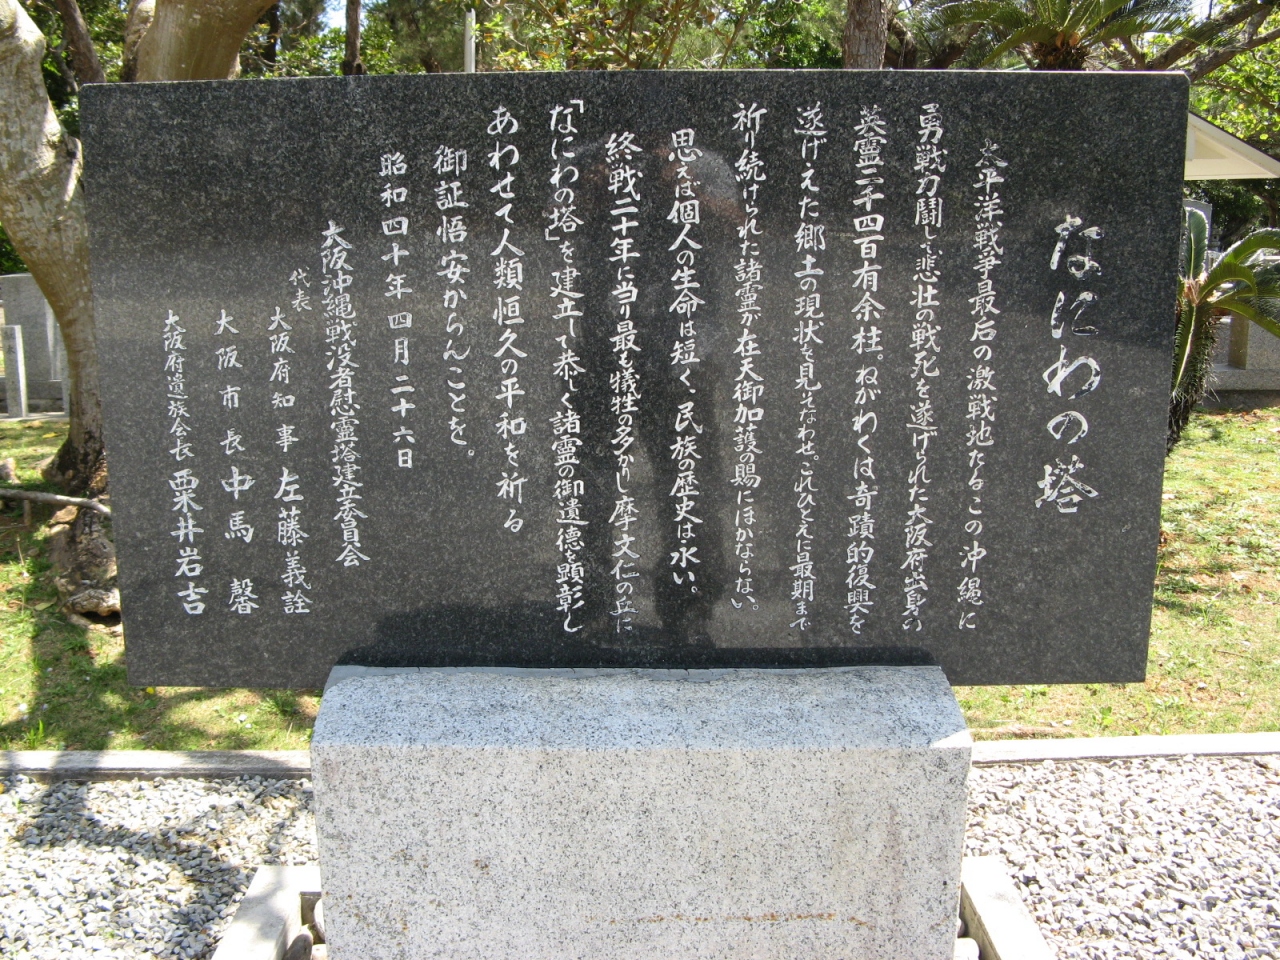 なにわの塔
太平洋戦争最后の激戦地たるこの沖縄に
勇戦力闘して、悲壮の戦死を遂げられた大阪府出身の
英霊二千四百有余柱。ねがわくは奇蹟的復興を
遂げえた郷土の現状を見そなわせ。これひとえに最期まで
祈り続けられた諸霊が在天御加護の賜にほかならない。
思えば個人の生命は短く、民族の歴史は永い。
終戦二十年に当り最も犠牲の多かりし摩文仁の丘に
「なにわの塔」を建立して恭しく諸霊の御遺徳を顕彰し
あわせて人類恒久の平和を祈る
御証悟安からんことを。
昭和四十年四月二十六日
大阪沖縄戦没者慰霊塔建立委員会
代表
大阪府知事 左藤義詮
大阪市長 中馬馨
大阪府遺族会長 粟井岩吉